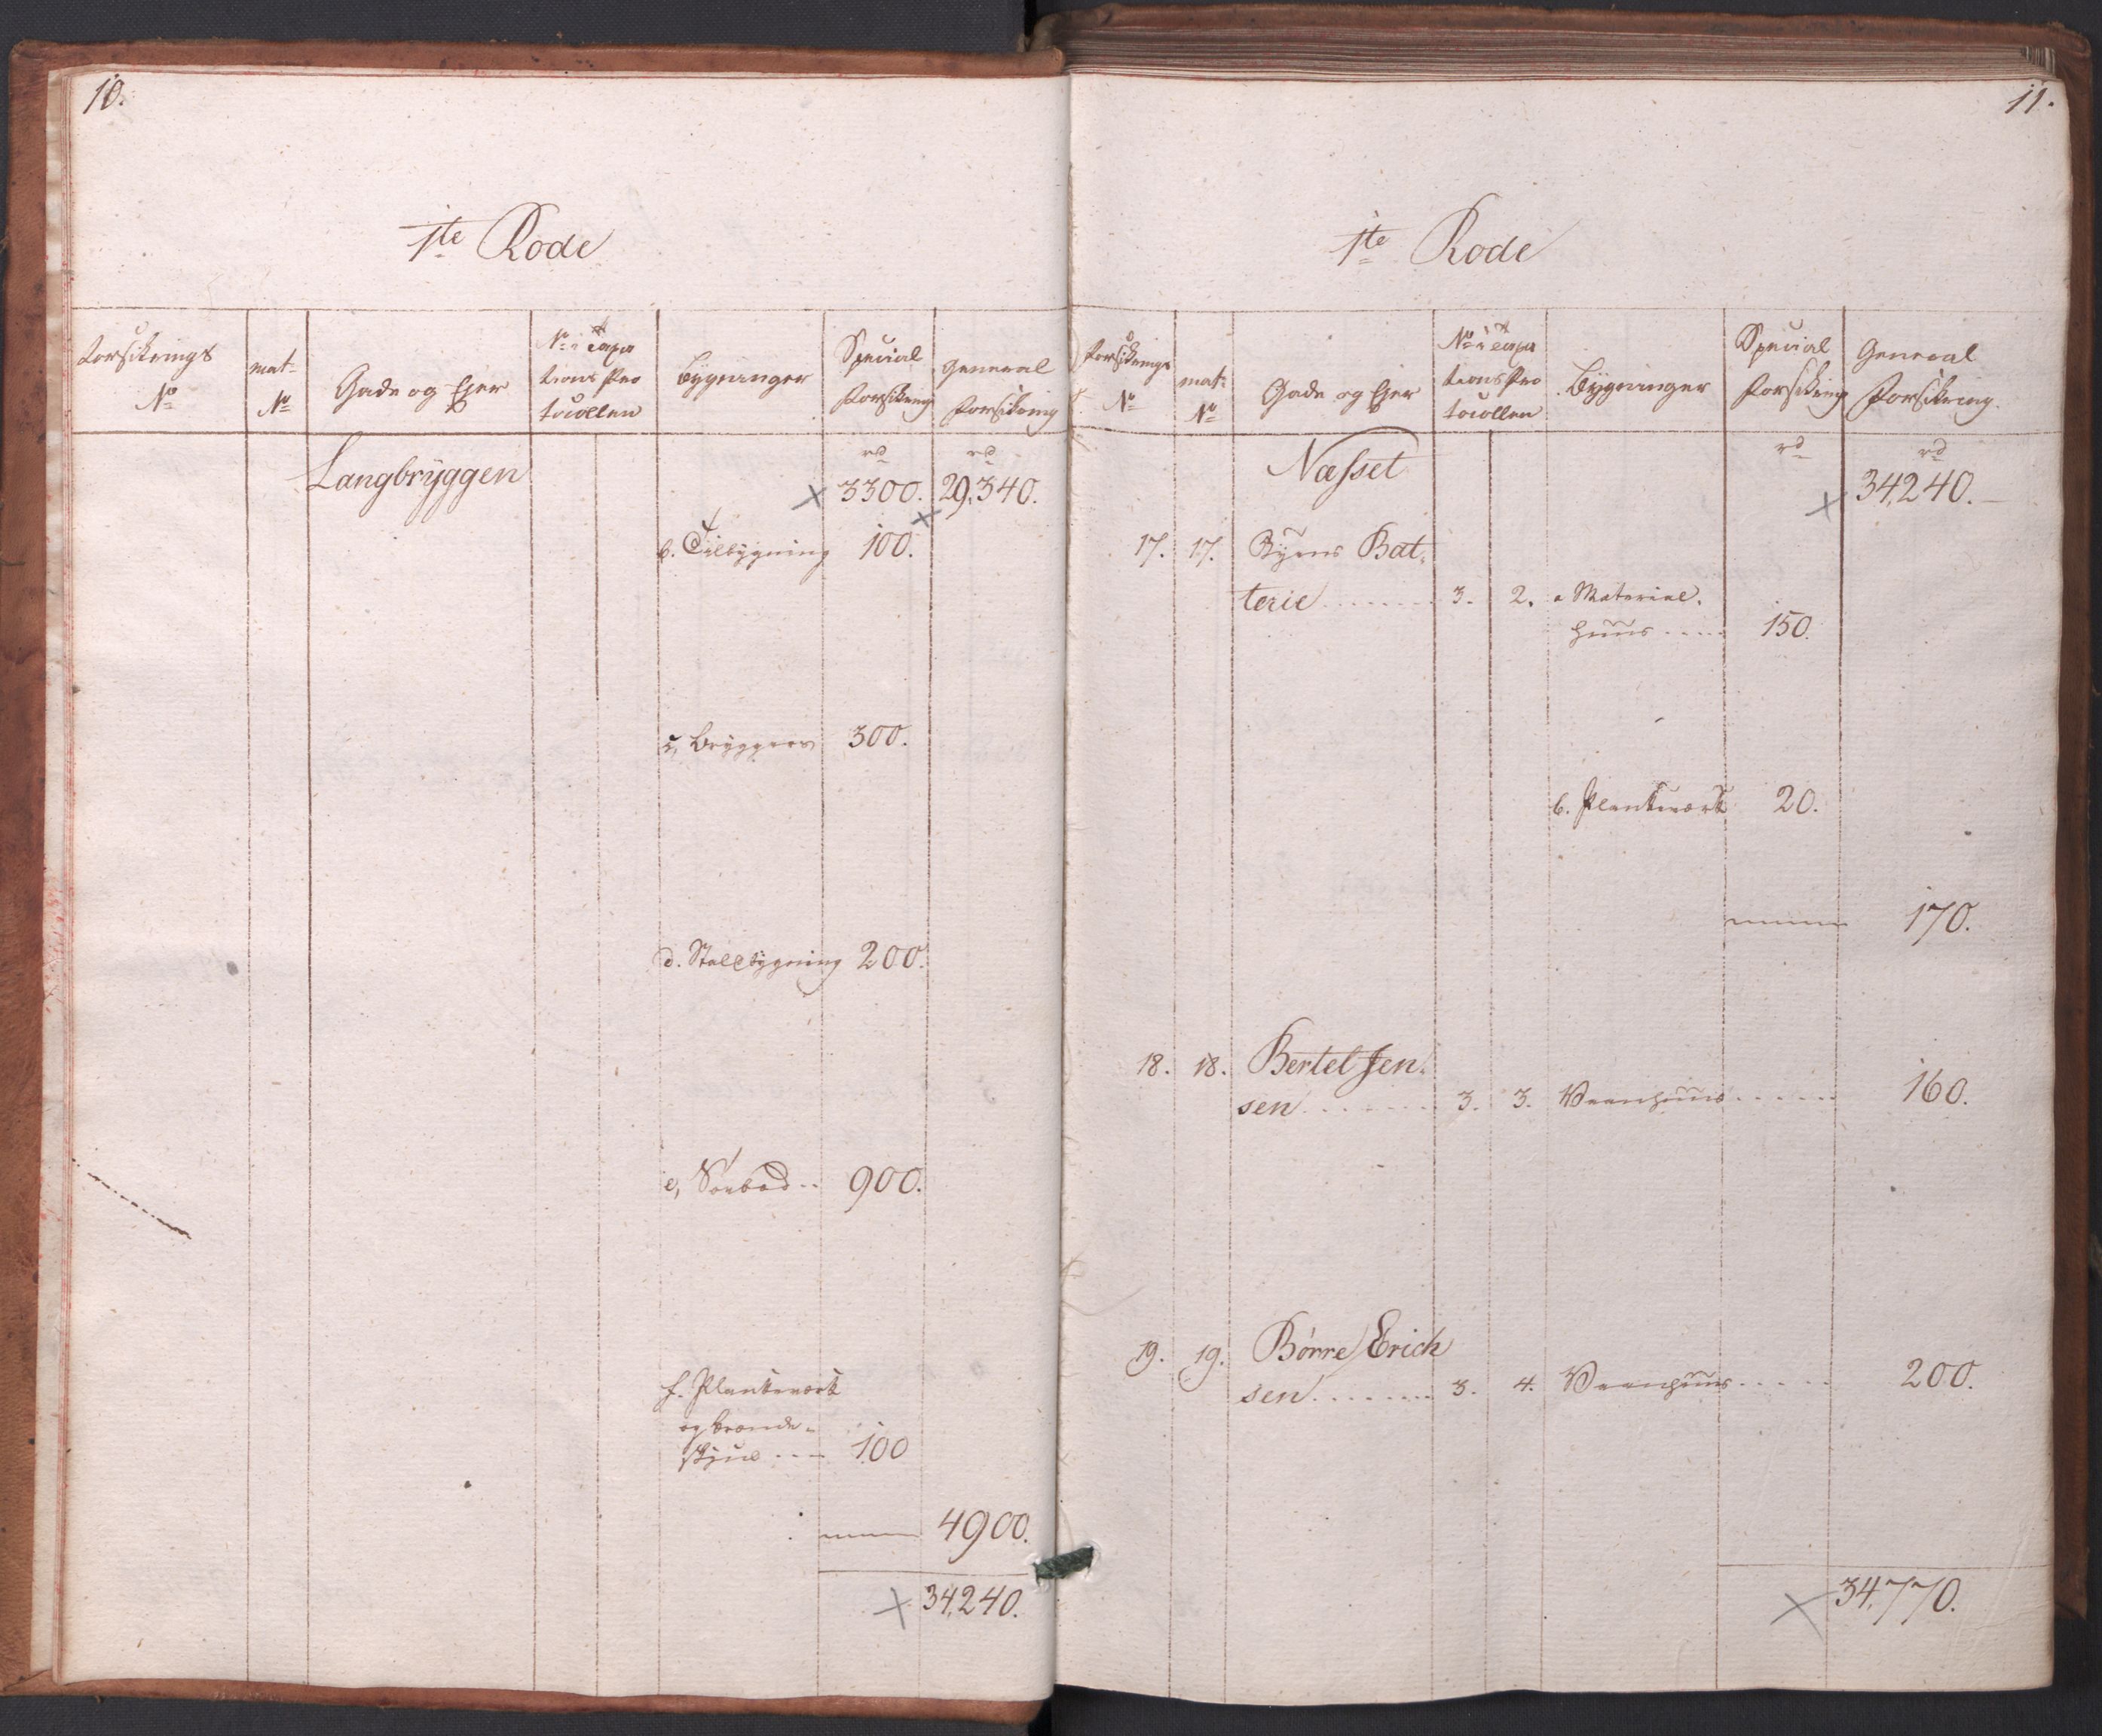 10.
1te Rode
Forsikrings
No
mat-
No
Gade og Ejer
No i Taxa
tions Pro
tocollen
Bygninger
Special
Forsikring
General
Forsikring
Langbryggen
rd
rd
3300.
29,340.
b. Tilbygning 100.
c, Bryggers 300.
d. Stallbygning 200.
e, Søebod 900.
f. Plankeværk
og brænde-
skjul 100
4900.
34,240.
11.
1te Rode
Forsikrings
No
mat:
No
Gade og Ejer
No i Taxa
tions Pro
tocollen
Bygninger
Special
Forsikring
General
Forsikring.
Næsset
rd
rd
34,240.
17. 17. Byens Bat-
terie 3. 2. a Material-
huus 150.
b. Plankeværk 20.
170.
18. 18. Bertel Jen-
sen 3. 3. Vaanhuus 160.
19. 19. Børre Erich
sen 3. 4. Vaanhuus 200.
34,770.